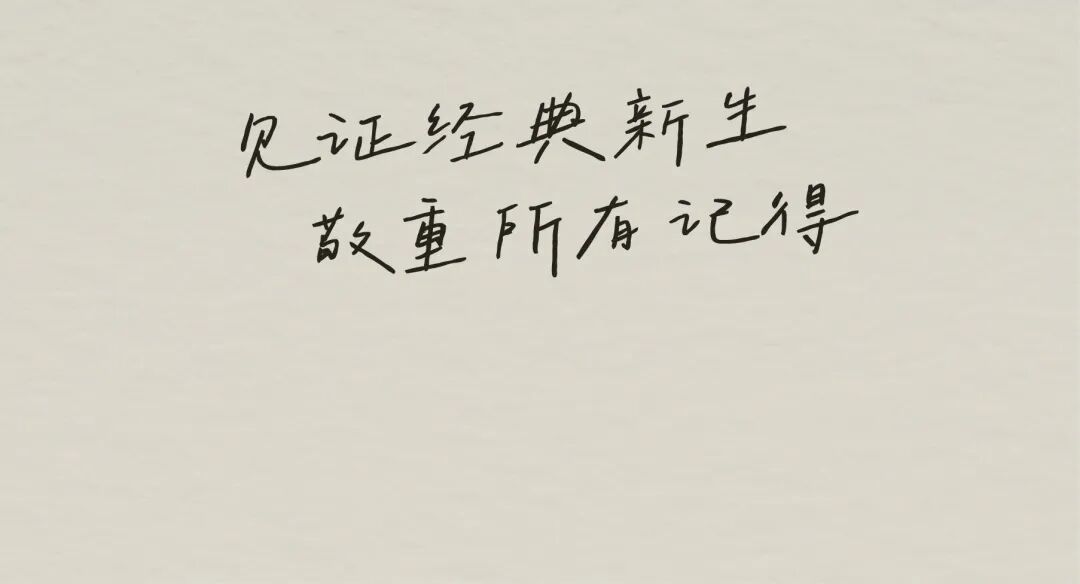 见证经典新生
敬重所有记得